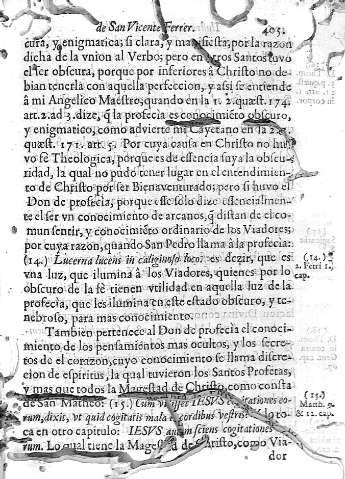 de San Vicente Ferrer. 403.
cura, y enigmatica; si clara, y manifiesta, por la razon
dicha de la vnion al Verbo; pero en otros Santos tuvo
el ser obscura, porque por inferiores â Christo no de-
bian tenerla con aquella perfeccion, y assi se entiende
â mi Angelico Maestro; quando en la 1. 2. quæst. 174.
art. 2. ad 3. dize, q̃ la profecia es conocimiẽto obscuro,
y enigmatico, como advierte mi Cayetano en la 2. 2.
quæst. 171. art. 5. Por cuya causa en Christo no hu-
vo fè Theologica, porque es de essencia suya la obscu-
ridad, la qual no pudo tener lugar en el entendimien-
to de Christo por ser Bienaventurado; pero si huvo el
Don de profecia, porque esse solo dize essencialmen-
te el ser vn conocimiento de arcanos, q̃ distan de el co-
mun sentir, y conocimiẽto ordinario de los Viadores;
por cuya razon, quando San Pedro llama â la profecia:
(14.) Lucerna lucens in caliginoso loco: es dezir, que es
vna luz, que ilumina â los Viadores, quienes por lo
obscuro de la fè tienen vtilidad en aquella luz de la
profecia, que les ilumina en este estado obscuro, y te-
nebroso, para mas conocimiento.
Tambien pertenece al Don de profecia el conoci-
miento de los pensamientos mas ocultos, y los secre-
tos de el corazon, cuyo conocimiento se llama discre-
cion de espiritus, la qual tuvieron los Santos Profetas,
y mas que todos la Magestad de Christo, como consta
de San Matheo: (15.) Cum vidisset IESVS cogitationes eo-
rum, dixit, vt quid cogitatis mala cordibus vestris? lo to-
ca en otro capitulo: IESVS autem sciens cogitationes
rum. Lo qual tiene la Magestad de Christo, como Via-
dor
(14.)
2. Petri 1.
cap.
(15.)
Matth. 9.
& 12. cap.